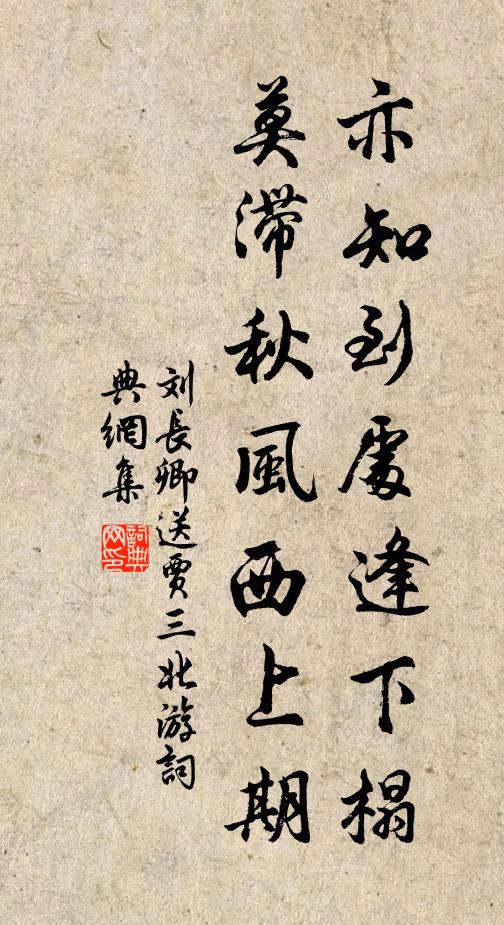 亦知到處逢下榻
莫滯秋風西上期
刘長卿送賈三北游詞
典網集
詞典網印